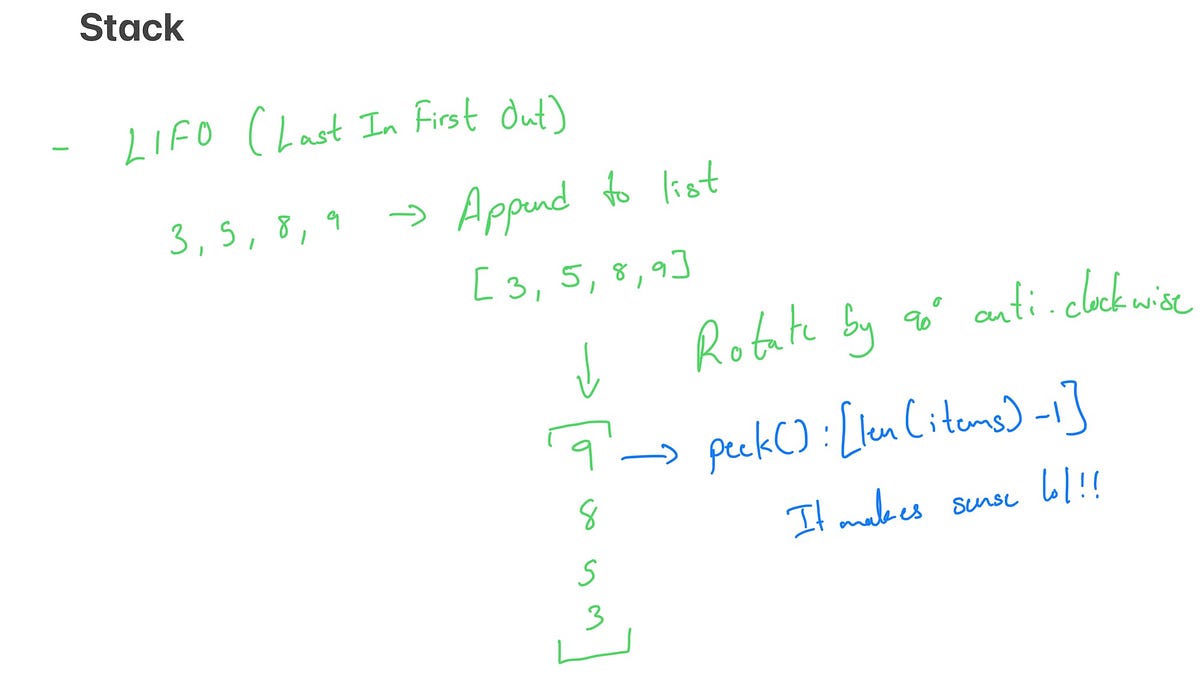 Stack
- LIFO (Last In First Out)
3, 5, 8, 9 → Append to list
[3, 5, 8, 9]
↓
Rotate by 90° anti-clockwise
9 → peek() : [len(items) -1]
8
It makes sense lol!!
5
3